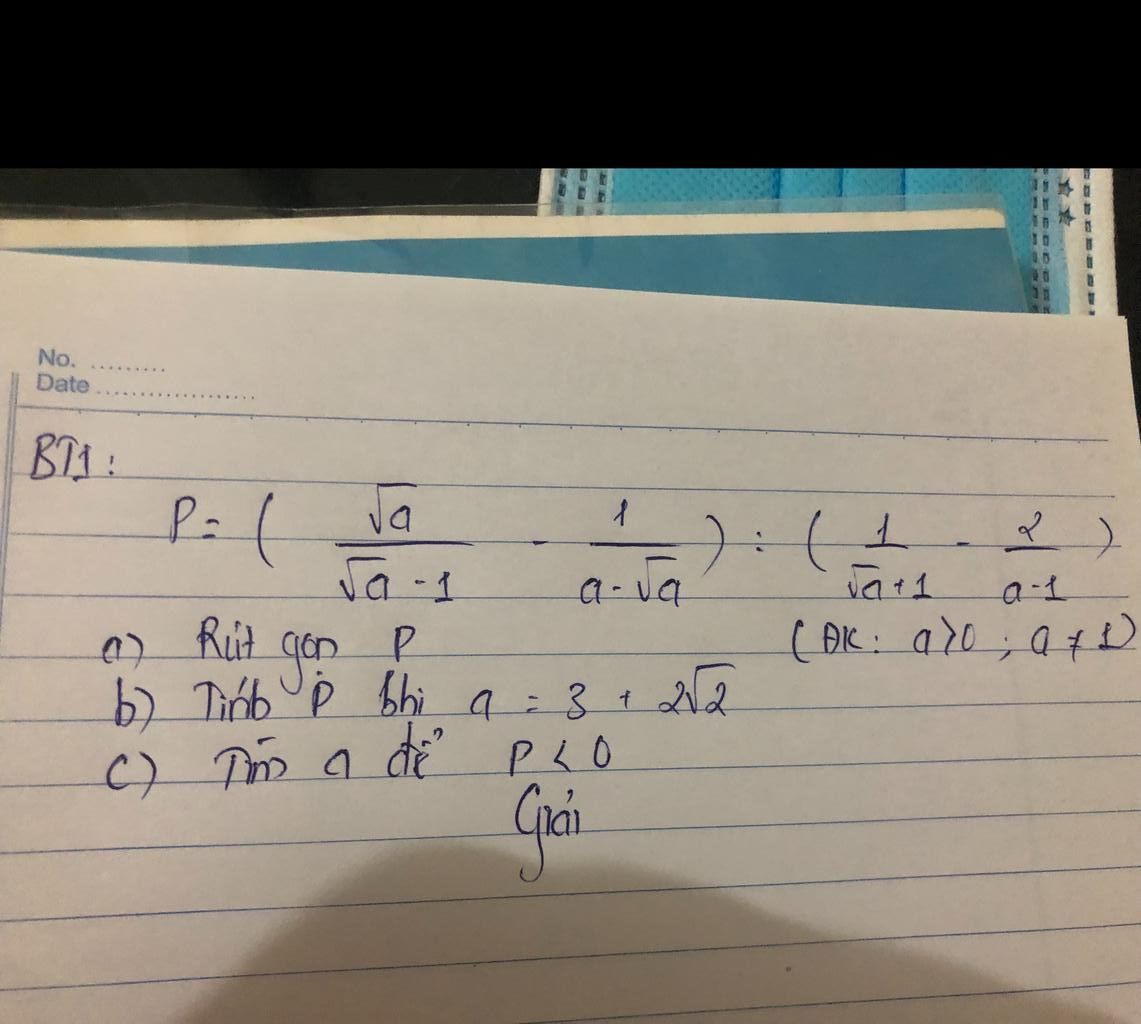 No. .........
Date ...................
BT1:
P = ( √a / (√a - 1) - 1 / (a - √a) ) : ( 1 / (√a + 1) - 2 / (a - 1) )
(ĐK: a > 0 ; a ≠ 1)
a) Rút gọn P
b) Tính P khi a = 3 + 2√2
c) Tìm a để P < 0
Giải